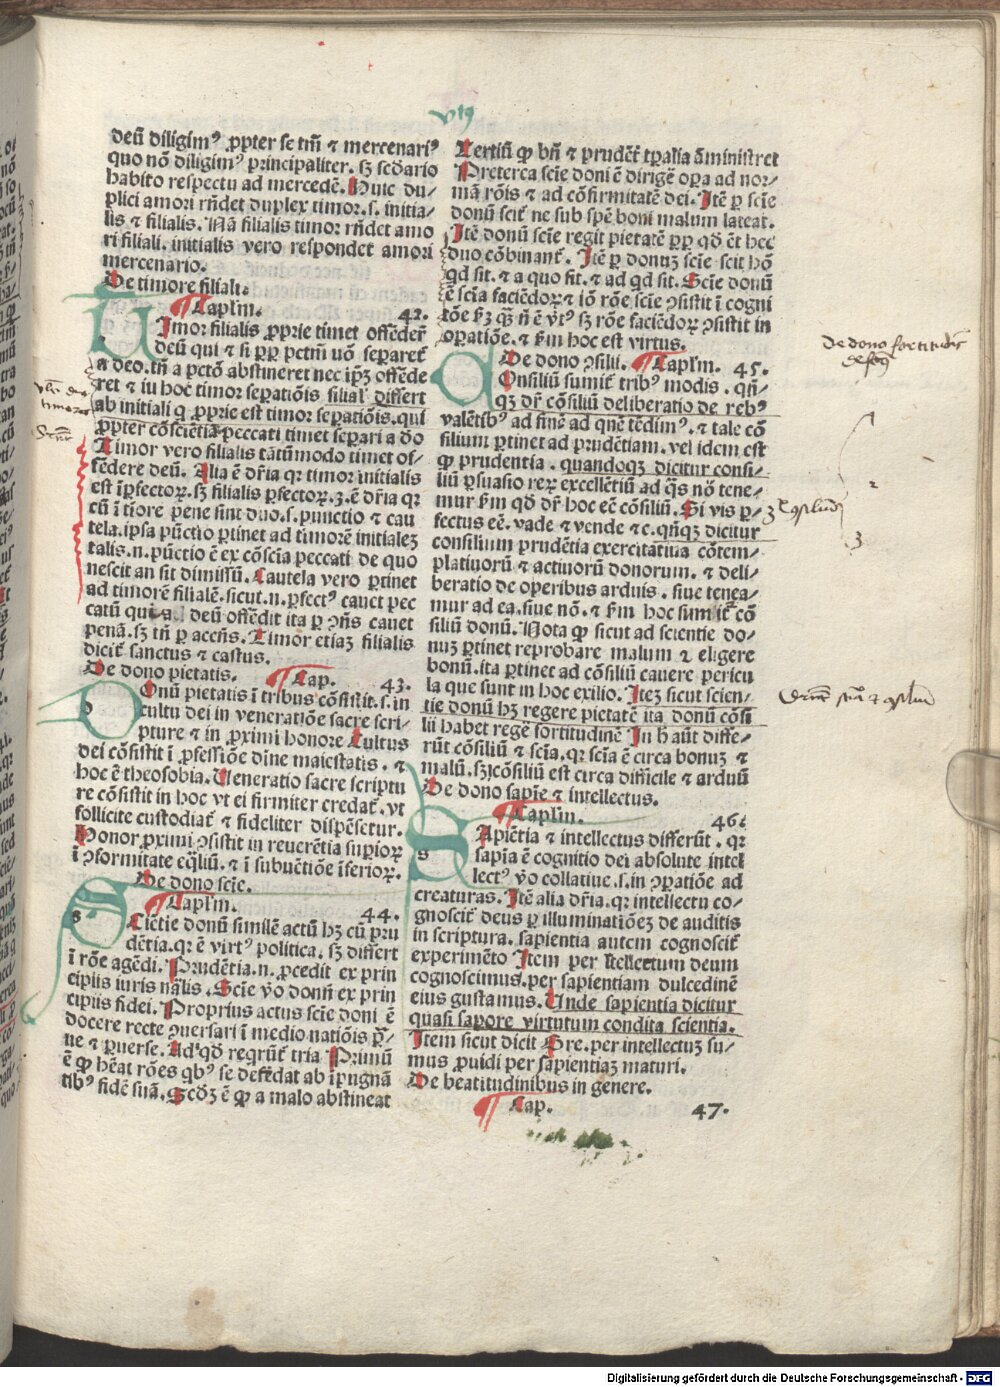 deū diligimꝰ ꝓpter se tm̄ ⁊ mercenariꝰ
quo nō diligimꝰ principaliter. sꝫ scd̄ario
habito respectu ad mercedē. Huic du/
plici amori rn̄det duplex timor. s. initia/
lis ⁊ filialis. Nā filialis timor rn̄det amo
ri filiali. initialis vero respondet amori
mercenario.
De timore filiali.
Capl̄m. 42.
Timor filialis ꝓprie timet offēder̄
deū qui ⁊ si ꝑꝑ pctm̄ uō separet᷑
a deo. tn̄ a pctō abstineret nec ip̄ꝫ offēde
ret ⁊ iu hoc timor sepatiōis filial᷑ differt
ab initiali q̄ ꝓprie est timor sepatiōis. qui
ꝓpter cōscientiā peccati timet separi a dō
Timor vero filialis tātūmodo timet of/
fēdere deū. Alia ē dr̄ia qꝛ timor initialis
est īꝑfectoꝝ. sꝫ filialis ꝑfectoꝝ. 3. ē dr̄ia qꝛ
cū ī tiore pene sint duo. s. punctio ⁊ cau
tela. ipsa pūctio ꝑtinet ad timorē initialeꝫ
talis. n. pūctio ē ex cōscīa peccati de quo
nescit an sit dimissū. Cautela vero ꝑtinet
ad timorē filialē. sicut. n. ꝑfectꝰ cauet pec
catū qui deū offēdit ita ꝑ ↄn̄s cauet
penā. sꝫ tn̄ ꝑ accn̄s. Timor etiaꝫ filialis
dicit᷑ sanctus ⁊ castus.
De dono pietatis. Cap. 43.
Donū pietatis ī tribus cōsistit. s. in
cultu dei in veneratiōe sacre scri/
pture ⁊ in ꝓximi honore Cultus
dei cōsistit ī ꝓfessiōe diīne maiestatis. ⁊
hoc ē theosobia. Ueneratio sacre scriptu
re cōsistit in hoc vt ei firmiter credat᷑. vt
sollicite custodiat᷑ ⁊ fideliter dispēsetur.
Honor ꝓximi ↄsistit in reuerētia supioꝝ
ī ↄformitate eq̄liū. ⁊ ī subuētiōe īferioꝝ.
De dono scīe.
Capl̄m. 44.
Scīctie donū similē actū hꝫ cū pru
dētia. qꝛ ē virtꝰ politica. sꝫ differt
ī rōe agēdi. Prudētia. n. ꝓcedit ex prin
cipiis iuris nālis. Scīe v̄o donū ex prin
cipiis fidei. Proprius actus scīe doni ē
docere recte ↄuersari ī medio natiōis p̄/
ue ⁊ ꝑuerse. Ad qd̄ reqrūt᷑ tria Primū
ē ꝙ hēat rōes qbꝰ se defēdat ab īpugnā
tibꝰ fidē suā. Scd̄ꝫ ē ꝙ a malo abstineat
vıȷꝰ
Tertiū ꝙ bn̄ ⁊ prudēt᷑ tꝑalia āministret
Preterea scīe doni ē dirigē oꝑa ad nor/
mā rōis ⁊ ad cōfirmitatē dei. Itē ꝑ scīe
donū scit᷑ ne sub spē boni malum lateat.
Itē donū scīe regit pietatē ꝑꝑ qd̄ ēt hec
duo cōbinant᷑. Itē ꝑ donuꝫ scīe scit hō
qd sit. ⁊ a quo sit. ⁊ ad qd sit. Scīe donū
ē scīa faciēdoꝝ ⁊ iō rōe scīe ↄsistit ī cogni
tōe s̄ꝫ qꝫ n̄ ē v̄tꝰ sꝫ rōe faciēdoꝝ ↄsistit in
oꝑatiōe. ⁊ s̄m hoc est virtus.
De dono ↄsilii. Capl̄m. 45.
Consiliū sumit᷑ tribꝰ modis. qn̄/
qꝫ dr̄ cōsiliū deliberatio de rebꝰ
valētibꝰ ad finē ad quē tēdimꝰ. ⁊ tale cō
silium ꝑtinet ad prudētiam. vel idem est
ꝙ prudentia. quandoqꝫ dicitur consi/
liū ꝑsuasio reꝝ excellētiū ad q̄s nō tene/
mur s̄m qd̄ dr̄ hoc eē cōsiliū. Si vis ꝑ/
fectus eē. vade ⁊ vende ⁊c. qn̄qꝫ dicitur
consilium prudētia exercitatiua cōtem/
platiuorū ⁊ actiuorū donorum. ⁊ deli/
beratio de operibus arduis. siue tenea/
mur ad ea. siue nō. ⁊ s̄m hoc sumit᷑ cō
siliū donū. Nota ꝙ sicut ad scientie do/
nuꝫ ꝑtinet reprobare malum ⁊ eligere
bonū. ita ꝑtinet ad cōsiliū cauere pericu
la que sunt in hoc exilio. Iteꝫ sicut scien/
tie donū hꝫ regere pietatē ita donū cōsi
lii habet regē fortitudinē In h aūt diffe/
rūt cōsiliū ⁊ scīa. qꝛ scīa ē circa bonuꝫ ⁊
malū. sꝫ cōsiliū est circa difficile ⁊ arduū
De dono sapīe ⁊ intellectus.
Capl̄m. 46.
Sapiētia ⁊ intellectus differūt. qꝛ
sapīa ē cognitio dei absolute intel
lectꝰ v̄o collatiue. s. in ↄꝑatiōe ad
creaturas. Itē alia dr̄ia. qꝛ intellectu co/
gnoscit᷑ deus ꝑ illuminatiōeꝫ de auditis
in scriptura. sapientia autem cognoscit᷑
experimēto Item per ītellectum deum
cognoscimus. per sapientiam dulcedinē
eius gustamus. Unde sapientia dicitur
quasi sapore virtutum condita scientia.
Item sicut dicit Gre. per intellectuꝫ su/
mus ꝓuidi per sapientiaꝫ maturi.
De beatitudinibus in genere.
Cap. 47.
de dono fortitudis
2
3
Digitalisierung gefördert durch die Deutsche Forschungsgemeinschaft - DFG